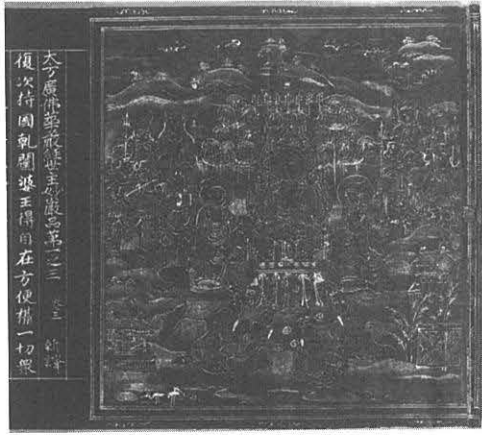 大方廣佛華嚴經世主妙嚴品第一之三 卷三 新譯
復次持國乾闥婆王得自在方便攝一切衆